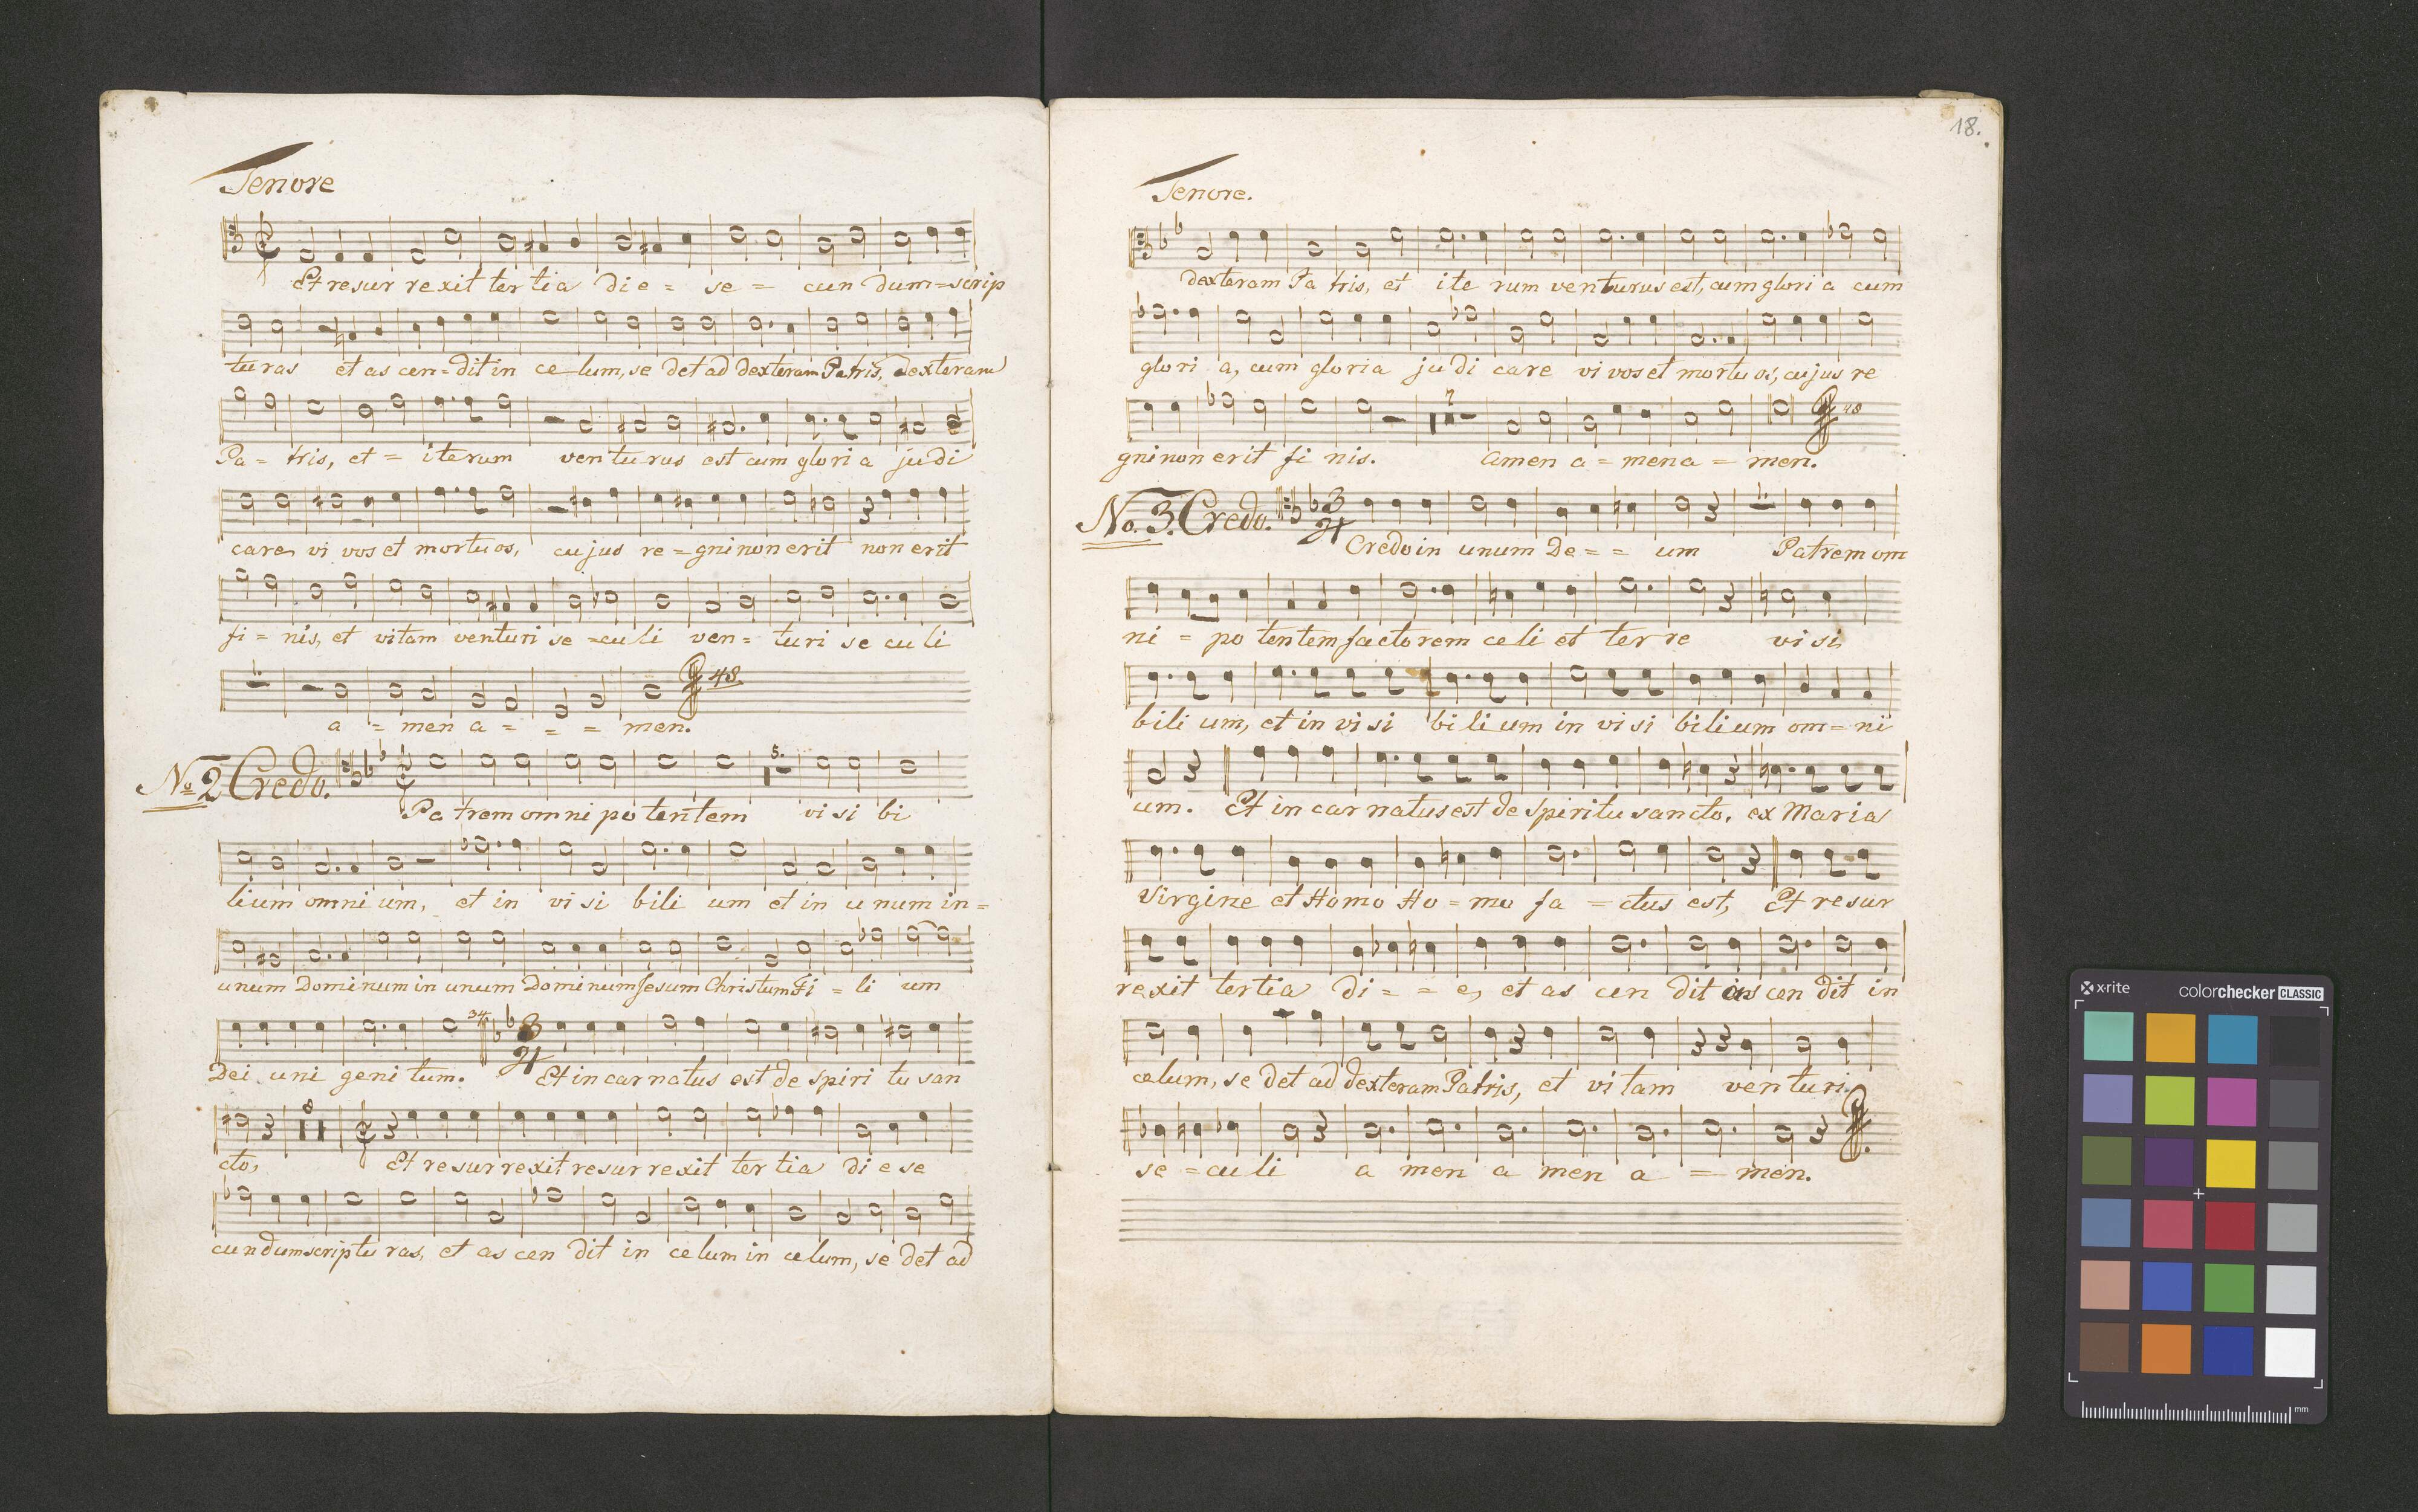 Tenore
Et resur rexit ter tia die = se = cun dum = scrip
turas et as cen = dit in ce lum, se det ad dexteram Patris, dexteram
Pa = tris, et = iterum ven tu rus est cum glo ri a judi
care vi vos et mortuos, cujus re = gni non erit non erit
fi = nis, et vitam venturi se = culi ven = turi se cu li
a = men a = = = men. 48.
No 2 Credo.
5.
Pa trem om ni po tentem vi si bi
lium omni um, et in vi si bili um et in unum in =
unum Dominum in unum Dominum Jesum Christum Fi = li um
34 3 4
Dei uni geni tum. Et in carnatus est de spiri tu san
8
cto, Et resurrexit resur rexit ter tia di e se
cundum scriptu ras, et as cen dit in celum in celum, se det ad
18.
Tenore.
dexteram Pa tris, et ite rum venturus est, cum glori a cum
glo ri a, cum gloria ju di care vi vos et mortu os, cujus re
7 48
gni non erit fi nis. Amen a = men a = men.
No. 3. Credo. 3 4
Credo in unum De = = um Patrem om
ni = po tentem factorem celi et ter re vi si
bili um, et in vi si bi li um in vi si bilium om = ni
um. Et in car natus est de spiritu sancto, ex Maria
Virgine et Homo Ho = mo fa = ctus est, Et resur
rexit tertia di = = e, et as cen dit as cen dit in
celum, se det ad dexteram Patris, et vi tam ven turi.
se = cu li a men a men a = men.
x-rite colorchecker CLASSIC
mm